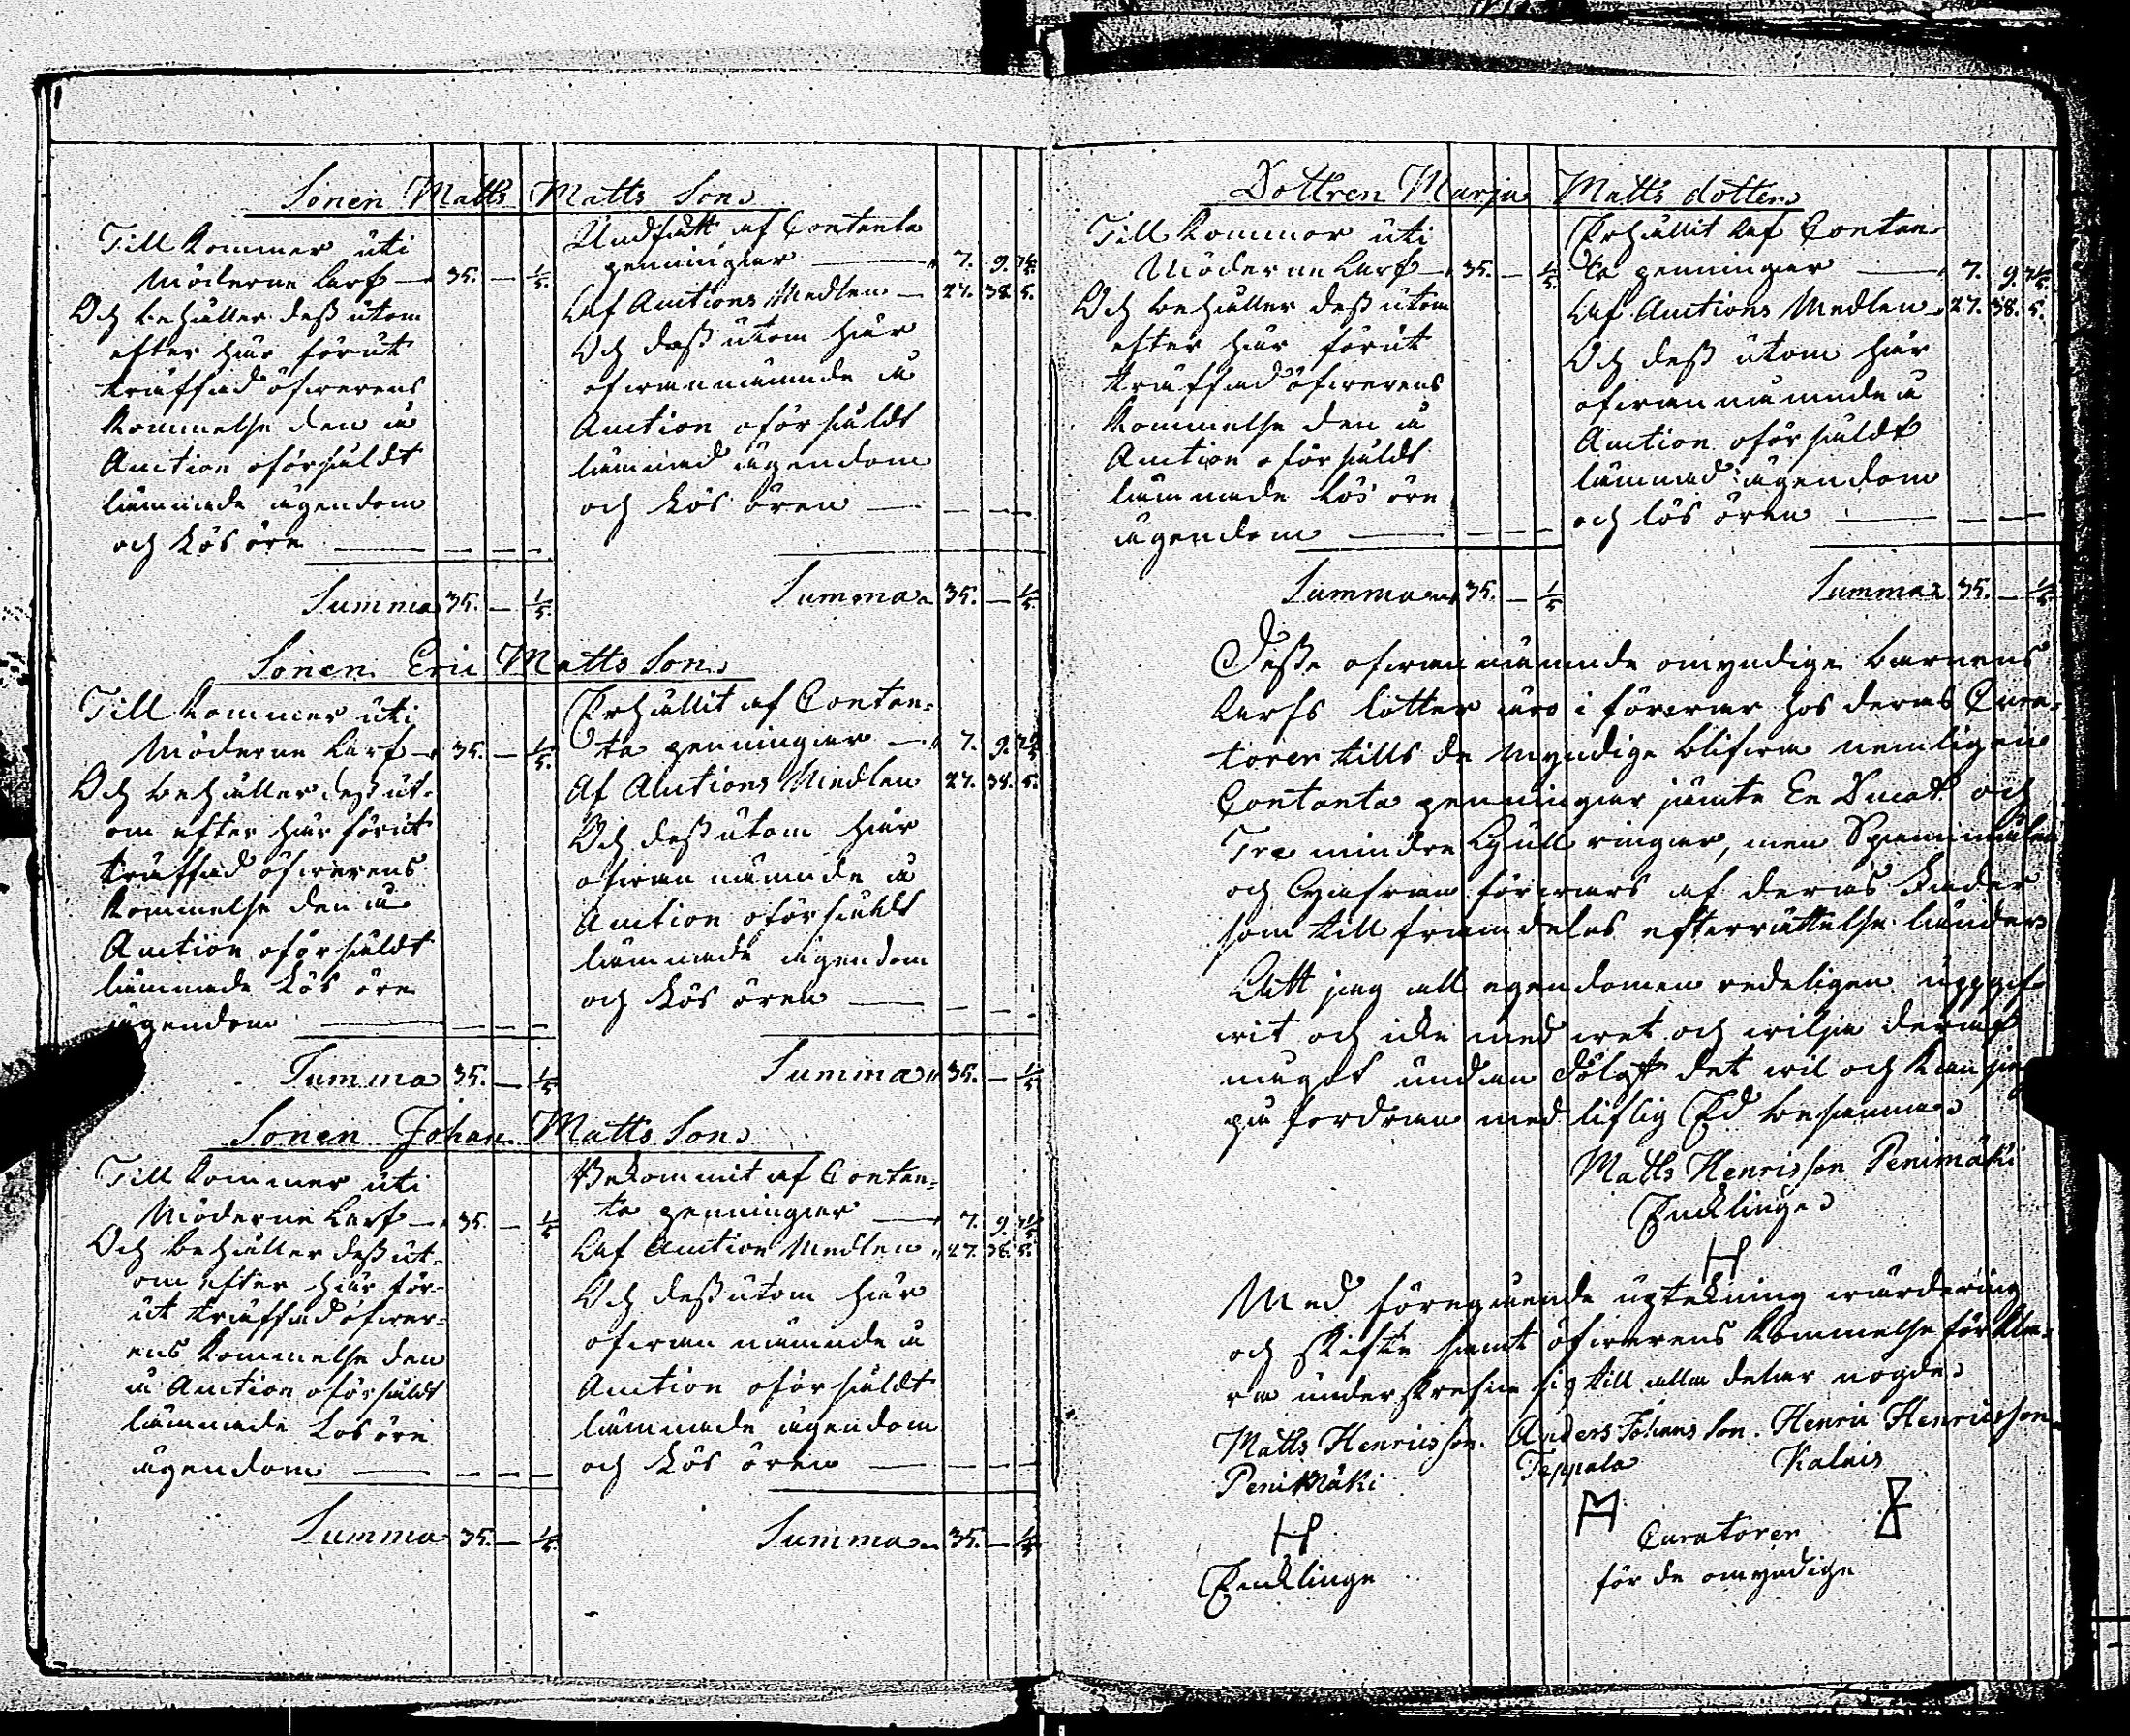 Sonen Matts Matts Son
Till kommer uti
Möderne Larf — 35. — 1/5.
Och behåller dess utom
efter här förut
träffad öfwerens
kommelse den å
Auction oförsåldt
lämnade ägendom
och Lös öre — — — —
Summa 35. — 1/5.
Undfått af Contanta
penningar — 7. 9.
Af Auctions Medlen — 27. 38. 5.
Och dess utom här
ofwannämnde å
Auction oförsåldt
lämnad ägendom
och Lös ören — — —
Summa 35. — 1/5.
Sonen Eric Matts Son
Till kommer uti
Möderne Larf — 35. — 1/5.
Och behåller dess ut-
om efter här förut
träffad öfwerens
kommelse den å
Auction oförsåldt
lämnade Lös öre
ägendom — — — —
Summa 35. — 1/5
Erhållit af Contan=
ta penningar — 7. 9.
Af Auctions Medlen 27. 38. 5.
Och dess utom här
ofwan nämnde å
Auction oförsåldt
lämnade ägendom
och Lös ören — — —
Summa 35. — 1/5
Sonen Johan Matts Son
Till kommer uti
Möderne Larf — 35. — 1/5
Och behåller dess ut-
om efter här för-
ut träffad öfwer=
ens kommelse den
å Auction oförsåldt
lämnade Lösöre
ägendom — — — —
Summa 35. — 1/5.
Bekommit af Contan=
ta penningar — 7. 9.
Af Auction Medlen 27. 38. 5.
Och dess utom här
ofwan nämnde å
Auction oförsåldt
lämnade ägendom
och Lös ören — — —
Summa 35. — 1/5
Dottren Marja Matts dotter
Till kommer uti
Möderne Larf — 35. — 1/5
Och behåller dess utom
efter här förut
träffad öfwerens
kommelse den å
Auction oförsåldt
lämnade Lös öre
ägendom — — — —
Summa 35. — 1/5
Erhållit af Contan-
ta penningar — 7. 9.
Af Auctions Medlen 27. 38. 5.
Och dess utom här
ofwannämnde å
Auction oförsåldt
lämnad ägendom
och lös ören — — —
Summa 35. — 1/5
Desse ofwannämnde omyndige barnens
Larfs lotter äro i förwar hos deras Cura-
torer tills de myndige blifwa nemligen
Contanta penningar jämte En Ducat och
Tre mindre Gull ringar, men Spannmålen
och förwars af deras Fader
som till framdeles efterrättelse länder
Att jag all egendomen redeligen uppgif-
wit och icke med wet och wilja deraf
något undan dölgt det wil och kan jag
på fordran med liflig Ed besanna
Matts Henrisson Penimäki
Encklinge
Med föregående uptekning wärdering
och skifte samt öfwerens kommelse förkla=
ra underskrefne sig till alla delar nögde
Matts Henricsson. Anders Johans Son. Henric Henricsson
Penimäki Teppala Kalnis
Curatorer
Encklinge för de omyndige